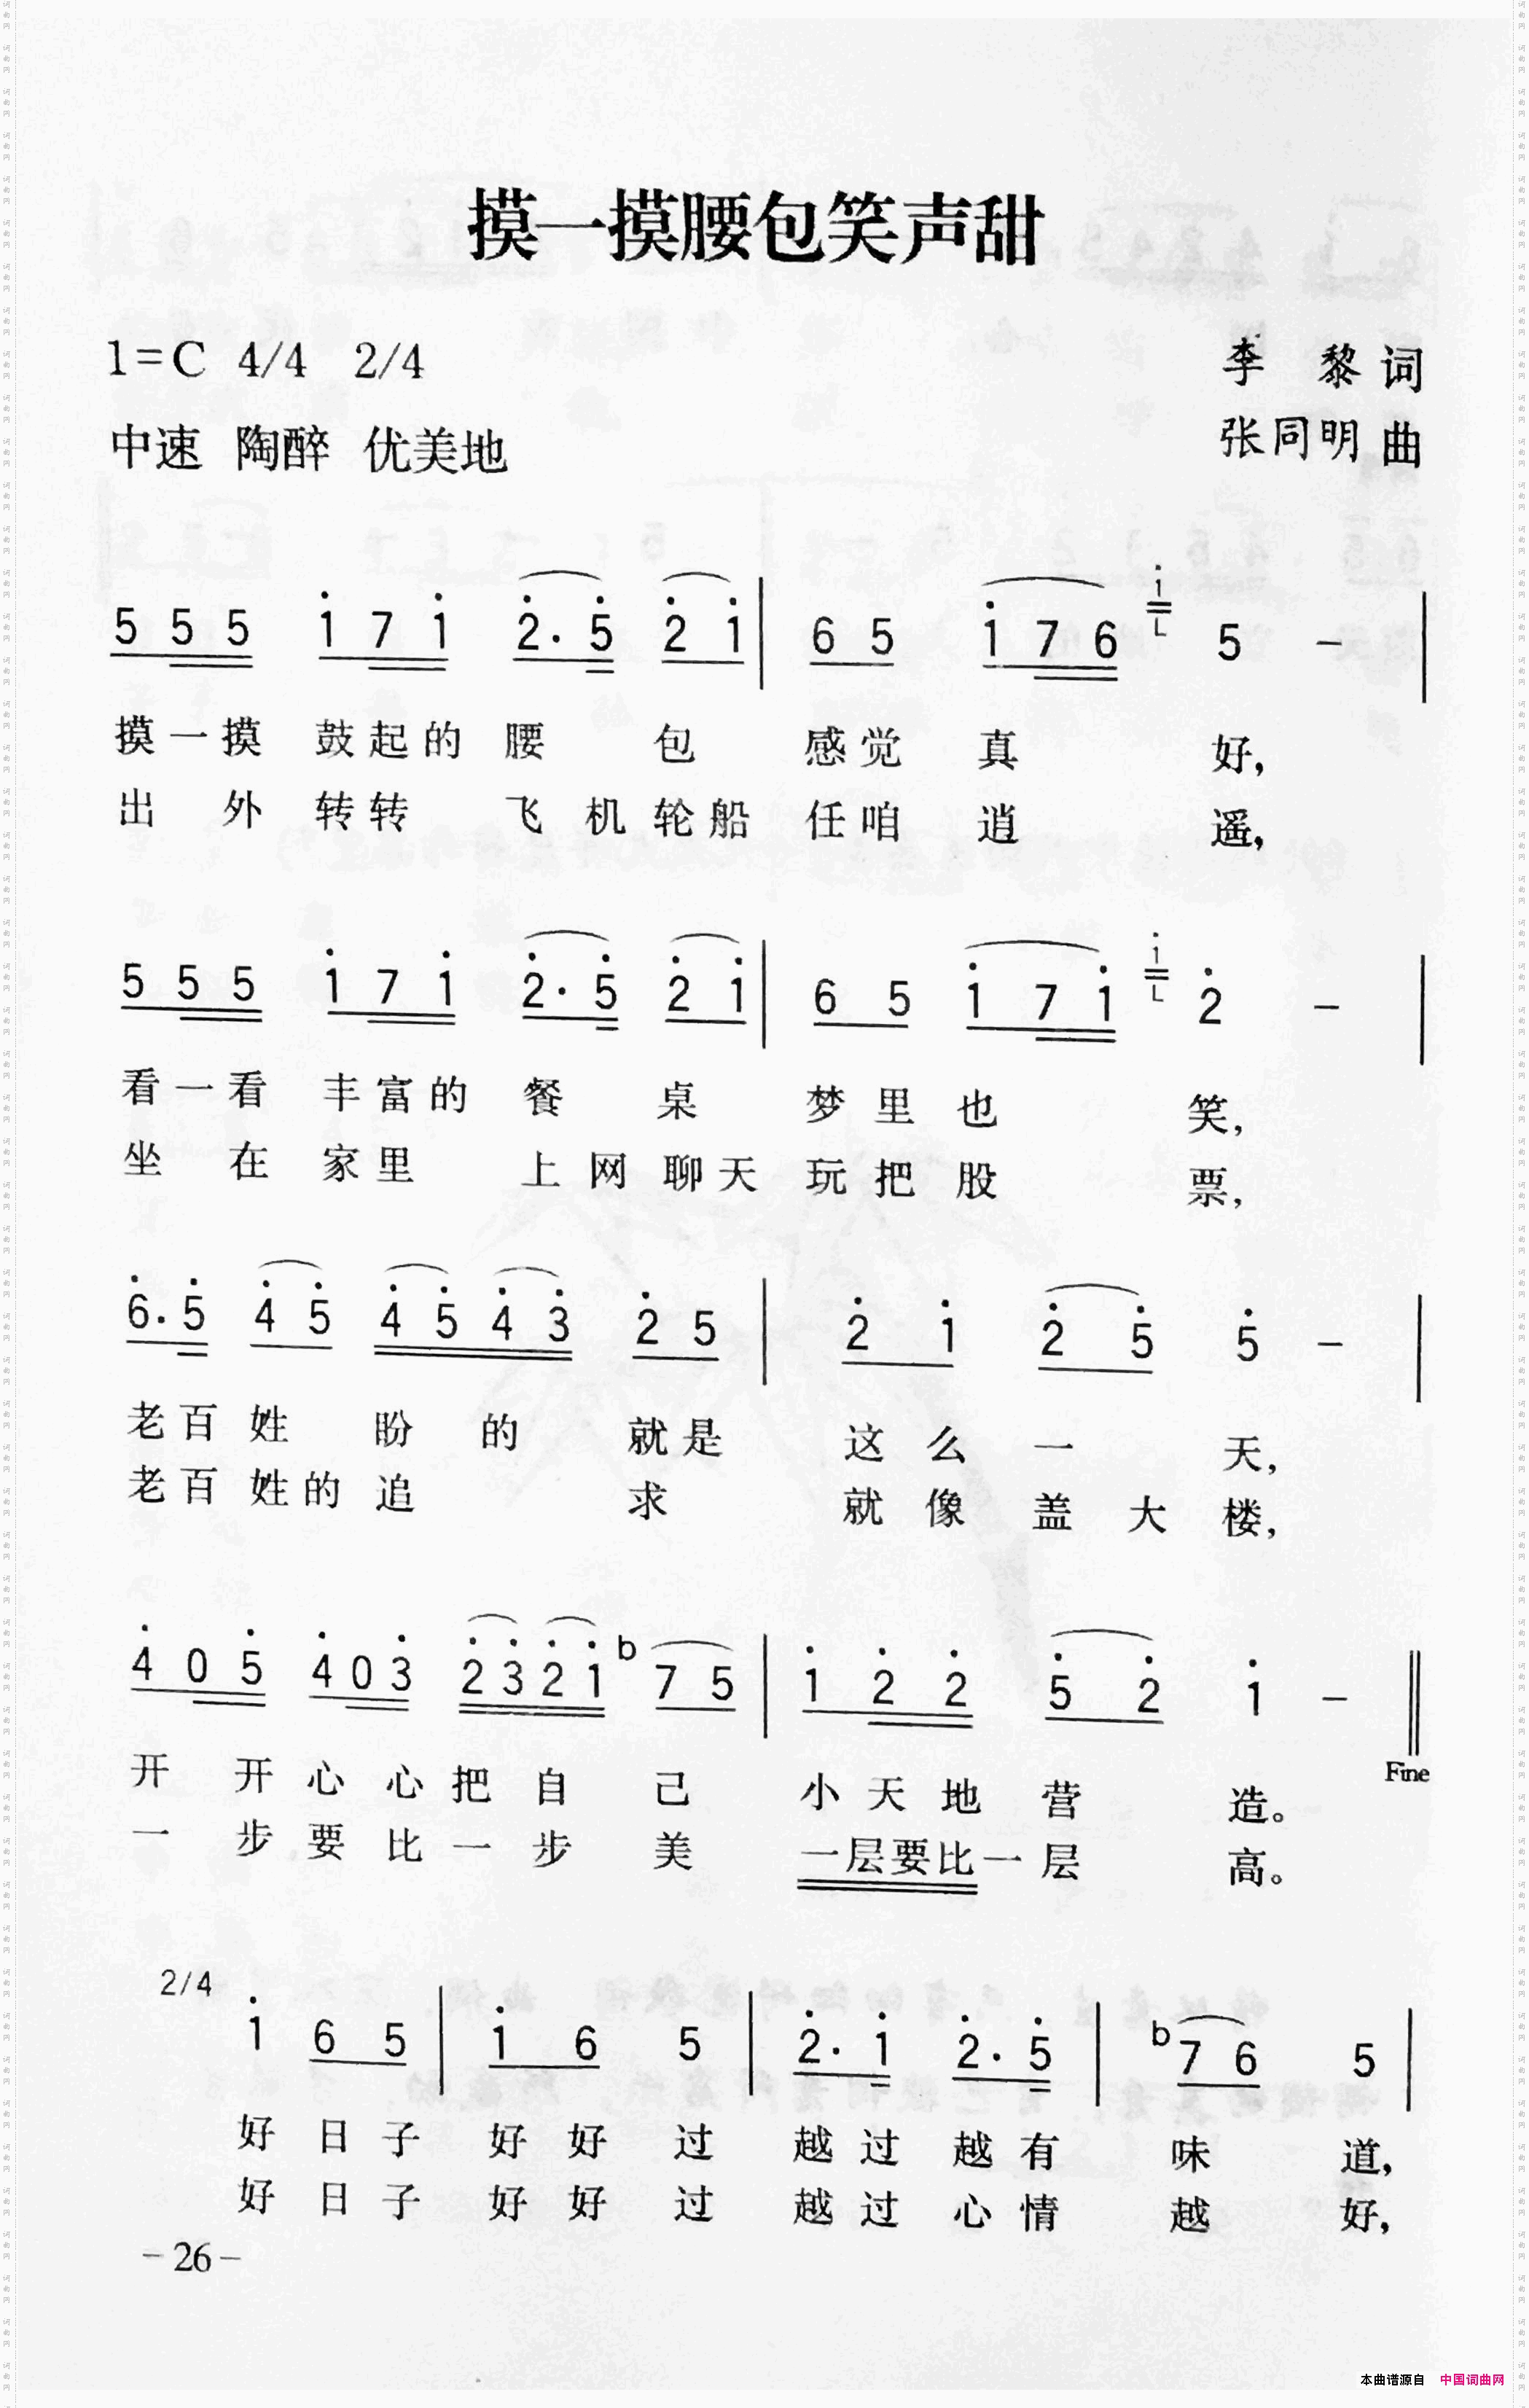 摸一摸腰包笑声甜
1=C 4/4 2/4
李 黎 词
中速 陶醉 优美地
张同明 曲
5 5 5 1 7 1 2. 5 2 1 | 6 5 1 7 6 1 5 - |
摸一摸 鼓起的 腰 包 感觉 真 好,
出 外 转转 飞 机 轮船 任咱 逍 遥,
5 5 5 1 7 1 2. 5 2 1 | 6 5 1 7 1 1 2 - |
看一看 丰富的 餐 桌 梦里 也 笑,
坐 在 家里 上 网 聊天 玩把 股 票,
6. 5 4 5 4 5 4 3 2 5 | 2 1 2 5 5 - |
老百 姓 盼 的 就是 这 么 一 天,
老百 姓的 追 求 就 像 盖 大 楼,
4 0 5 4 0 3 2 3 2 1 b7 5 | 1 2 2 5 2 1 - ‖
Fine
开 开 心 心 把 自 己 小 天 地 营 造。
一 步 要 比 一 步 美 一层要比一 层 高。
2/4
1 6 5 | 1 6 5 | 2. 1 2. 5 | b7 6 5 |
好 日 子 好 好 过 越 过 越 有 味 道,
好 日 子 好 好 过 越 过 心 情 越 好,
-26-
本曲谱源自 中国词曲网